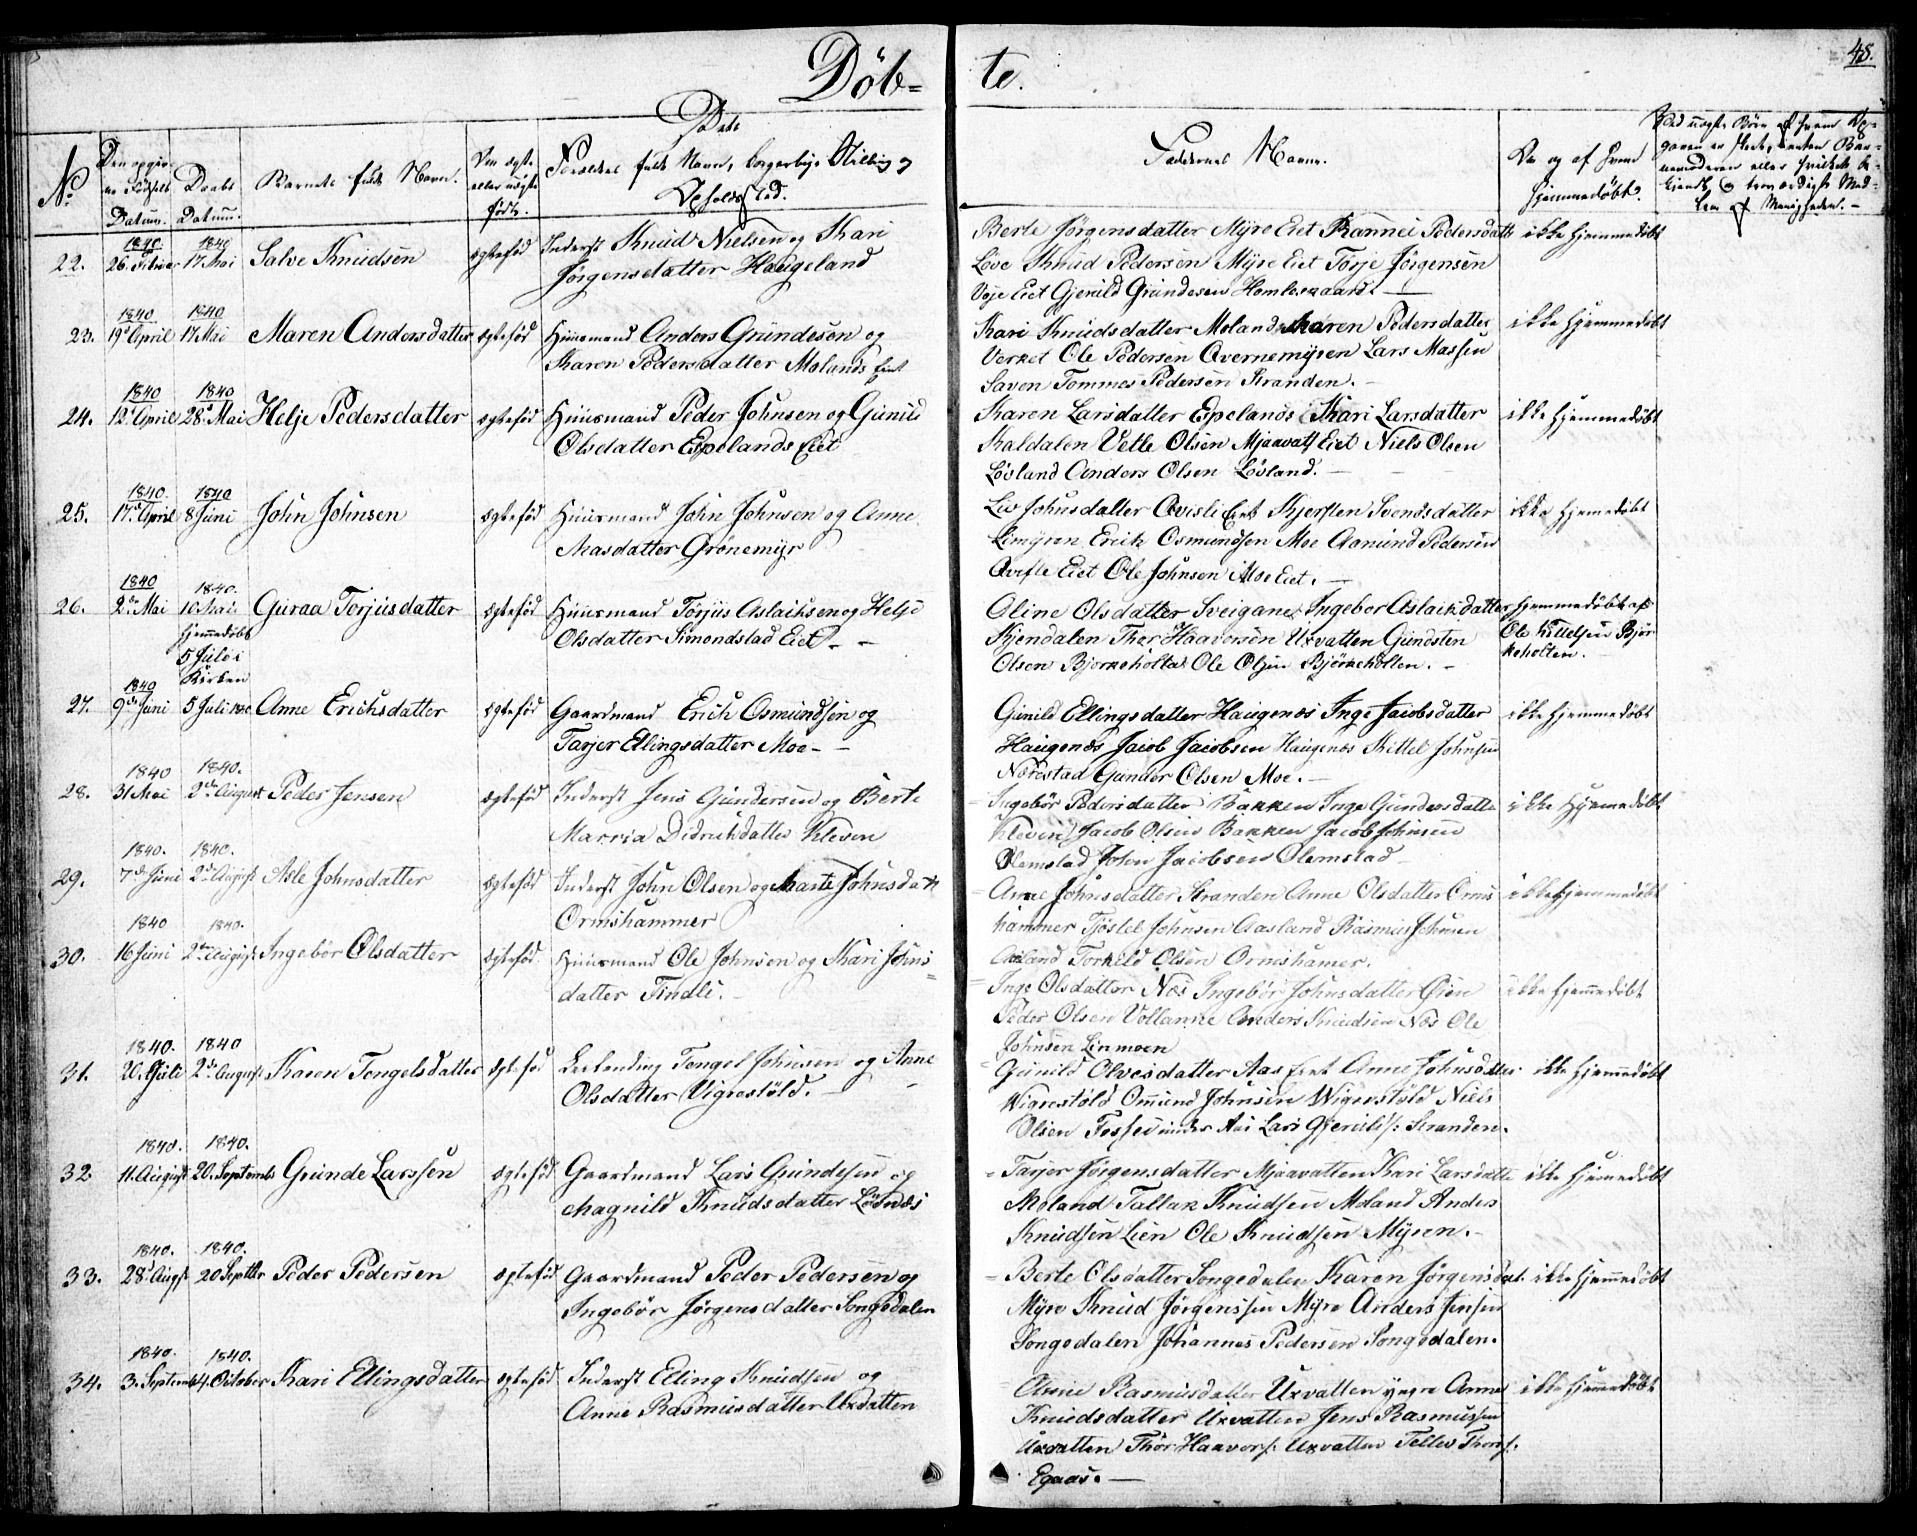 Døb=
te.
48.
No
Den opgiv-
ne Fødsels
Datum.
Daabs
Datum.
Barnets fulde Navn.
Om ægte
eller uægte
født.
Forældres fulde Navn, borgerlige Stilling og
Opholdssted.
Faddernes Navne.
Om og af hvem
hjemmedøbt?
22.
1840
26. Februar
1840
17 Mai
Salve Knudsen
ægtefød
Inderst Knud Nielsen og Kari
Jørgensdatter Haugeland
Berte Jørgensdatter Myre Eiet Rannei Pedersdatt
Løve Knud Pedersen Myre Eiet Torje Jørgensen
Voje Eiet Gjeruld Gundesen Homleskaard.
ikke hjemmedøbt
23.
1840
19d April
1840
17 Mai
Maren Andersdatter
ægtefød
Huusmand Anders Gundesen og
Karen Pedersdatter Molands Eiet
Kari Knudsdatter Moland Karen Pedersdatter
Verket Ole Pedersen Overnemyren Lars Massen
Saven Tommes Pedersen Stranden.
ikke hjemmedøbt
24.
1840
12d April
1840
28d Mai
Helje Pedersdatter
ægtefød
Huusmand Peder Johnsen og Gunild
Olsdatter Espelands Eiet
Karen Larsdatter Espelands Kari Larsdatter
Kaldalen Vetle Olsen Mjaavats Eiet Niels Olsen
Løvland Anders Olsen Løvland.
ikke hjemmedøbt
25.
1840.
17d April
1840
8 Juni
John Johnsen
ægtefød
Huusmand John Johnsen og Anne
Masdatter Grønemyr
Liv Johnsdatter Qvisli Eiet Kjersten Svendsdatter
Limyren Erich Osmundsen Moe Aamund Pedersen
Qvisle Eiet Ole Johnsen Moe Eiet.
ikke hjemedøbt
26.
1840
2den Mai
1840.
10 Mai
hjemmedøbt
5 Juli i
Kirken
Guraa Torjusdatter
ægtefød
Huusmand Torjus Aslaksen og Helje
Olsdatter Simonstad Eiet.
Oline Olsdatter Sveigane Ingebor Aslaksdatter
Kjendalen Thor Haaversen Uxvatten Gundsten
Olsen Bjorkeholta Ole Olsen Bjørkeholten.
hjemmedøbt af
Ole Kittelsen Bjør
keholten.
27.
1840
9de Juni
5 Juli 1840
Anne Erichsdatter
ægtefød
Gaardmand Erich Osmundsen og
Tarjer Ellingsdatter Moe
Gunild Ellingsdatter Haugenæs Inge Jacobsdatter
Haugenæs Jacob Jacobsen Haugenæs Kittel Johnsen
Norestad Gunder Olsen Moe.
ikke hjemmedøbt
28.
1840
31 Mai
1840.
2den August
Peder Jensen
ægtefød
Inderst Jens Gundersen og Berte
Marria Didrichdatter Kleven
Ingebør Pedersdatter Bakken Inge Gundersdatte
Kleven Jacob Olsen Bakken Jacob Johnsen
Olemstad John Jacobsen Olemstad
ikke hjemmedøbt
29.
1840.
7de Juni
1840.
2den August
Asle Johnsdatter
ægtefød
Inderst John Olsen og Marte Johnsdatt
Ormshammer
Anne Johnsdatter Stranden Anne Olsdatter Orms
hammer Tjøstel Johnsen Aasland Rasmus Johnsen
Aasland Torkild Olsen Ormshamer.
ikke hjemmedøbt
30.
1840
16 Juni
1840.
2den August
Ingebør Olsdatter
ægtefød
Huusmand Ole Johnsen og Kari Johns
datter Tindli.
Inge Olsdatter Næs Ingebør Johnsdatter Øien
Peder Olsen Vollanne Anders Knudsen Næs Ole
Johnsen Linmoen
ikke hjemmedøbt
31.
1840.
20. Juli
1840
2den August
Karen Tengelsdatter
ægtefød
Leilending Tengel Johnsen og Anne
Olsdatter Vigrestøld.
Gunild Olvesdatter Aas Eiet Anne Johnsdatter
Wigrestøld Omund Johnsen Wigrestøld Niels
Olsen Fosse under Aas Lars Gjeruldss: Stranden.
ikke hjemedøbt
32
1840.
11. August
1840.
20. September
Gunde Larssen
ægtefød.
Gaardmand Lars Gundesen og
Magnild Knudsdatter Lødnæs
Tarjer Jørgensdatter Mjaavatten Kari Larsdatte
Moland Tallak Knudsen Moland Anders
Knudsen Lien Ole Knudsen Myren.
ikke hjemmedøbt
33.
1840.
28d Augst
1840.
20 Septbr
Peder Pedersen
ægtefød
Gaardmand Peder Pedersen og
Ingebør Jørgensdatter Songedalen
Berte Olsdatter Songedalen Karen Jørgensdat.
Myre Knud Jørgenssen Myre Anders Jensen
Songedalen Johannes Pedersen Songedalen.
ikke hjemmedøbt
34.
1840.
3. Septemb
1840.
4. October
Kari Ellingsdatter
ægtefød
Inderst Elling Knudsen og
Anne Rasmusdatter Uxvatten
Anne Rasmusdatter Uxvatten yngre Anne
Knudsdatter Uxvatten Jens Rasmussen
Uxvatten Thor Haavors: Uxvatten Tellev Thors:
Egaas.
ikke hjemmedøbt